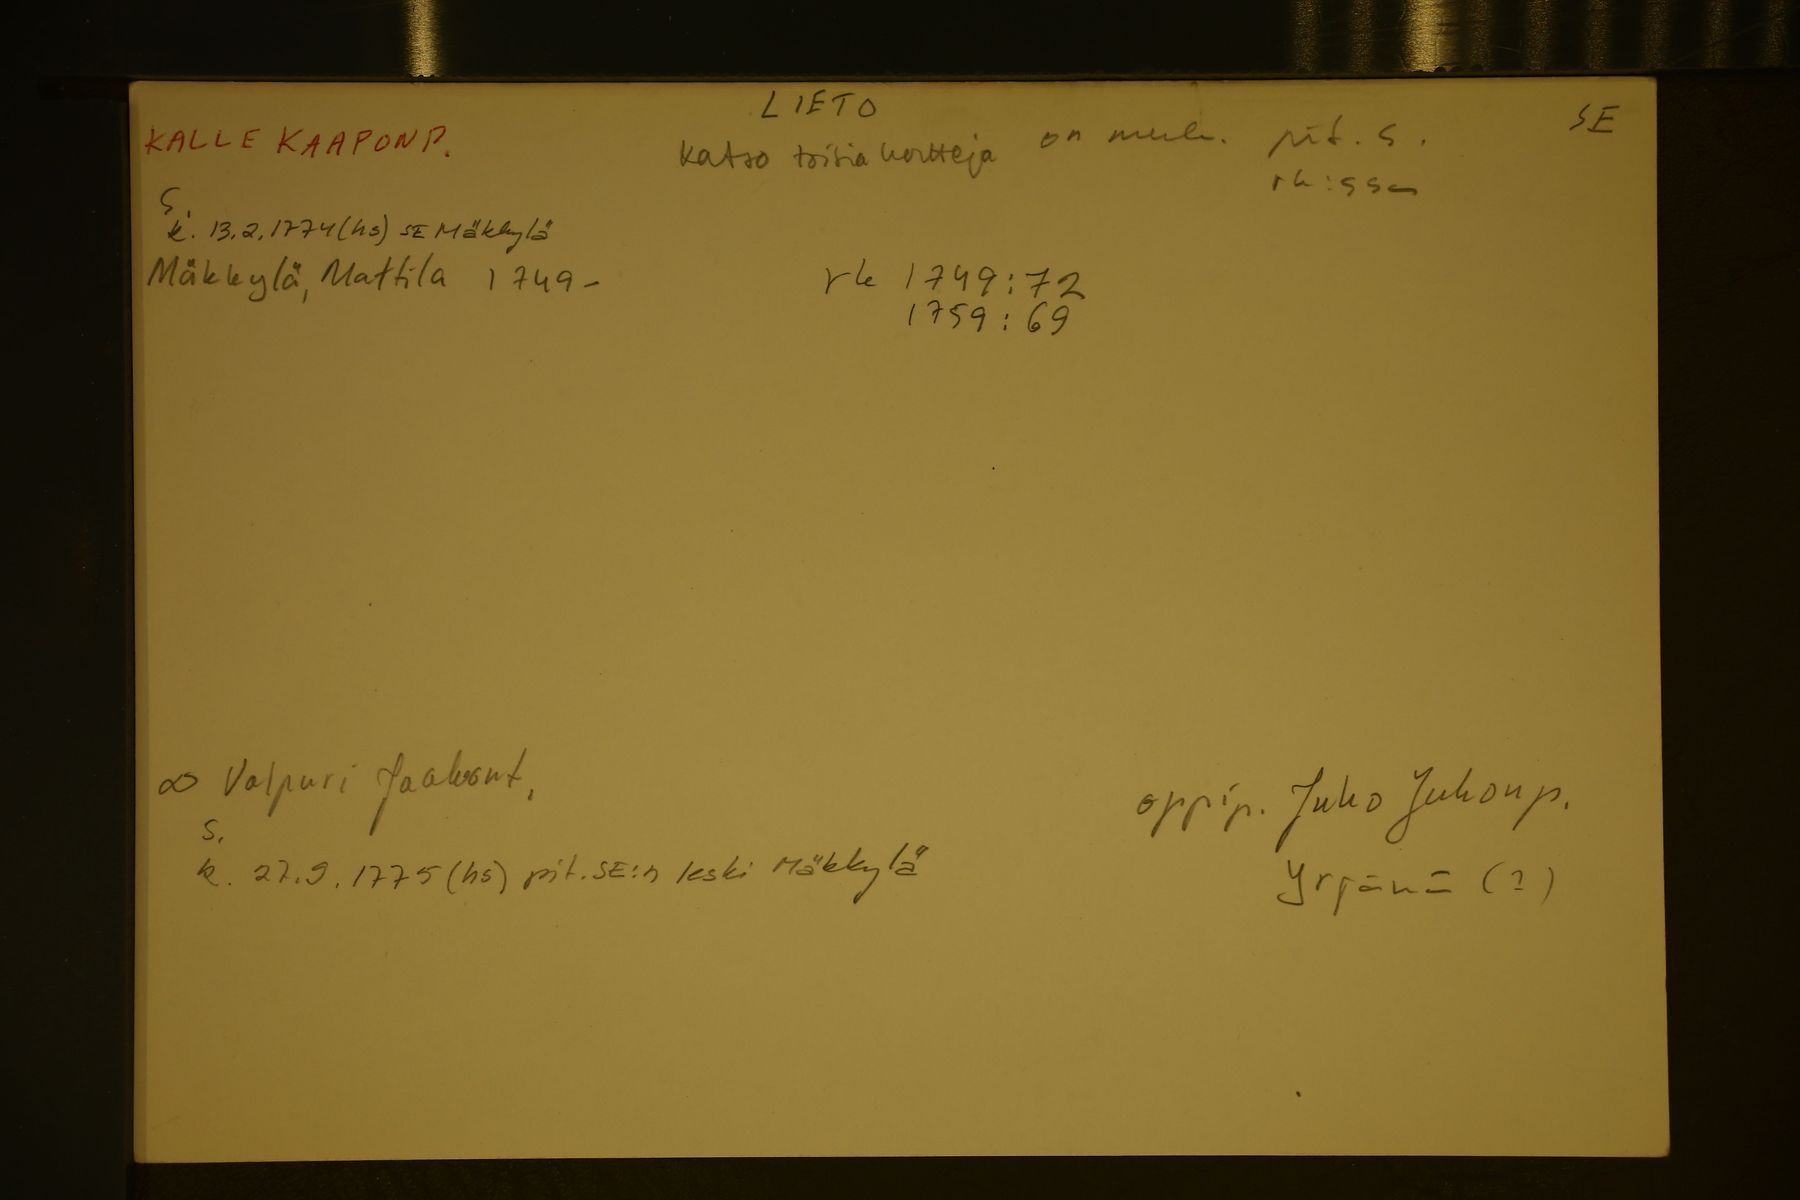 LIETO
SE
KALLE KAAPONP.
Katso toisia kortteja on merk. pit. s.
rk:ssa
s.
k. 13.2.1774 (hs) SE Mäkkylä
Mäkkylä, Mattila 1749-
rk 1749:72
1759:69
∞ Valpuri Jaakont.
oppip. Juho Juhonp.
s.
k. 27.9.1775 (hs) pit. SE:n leski Mäkkylä
Yrjänä (?)